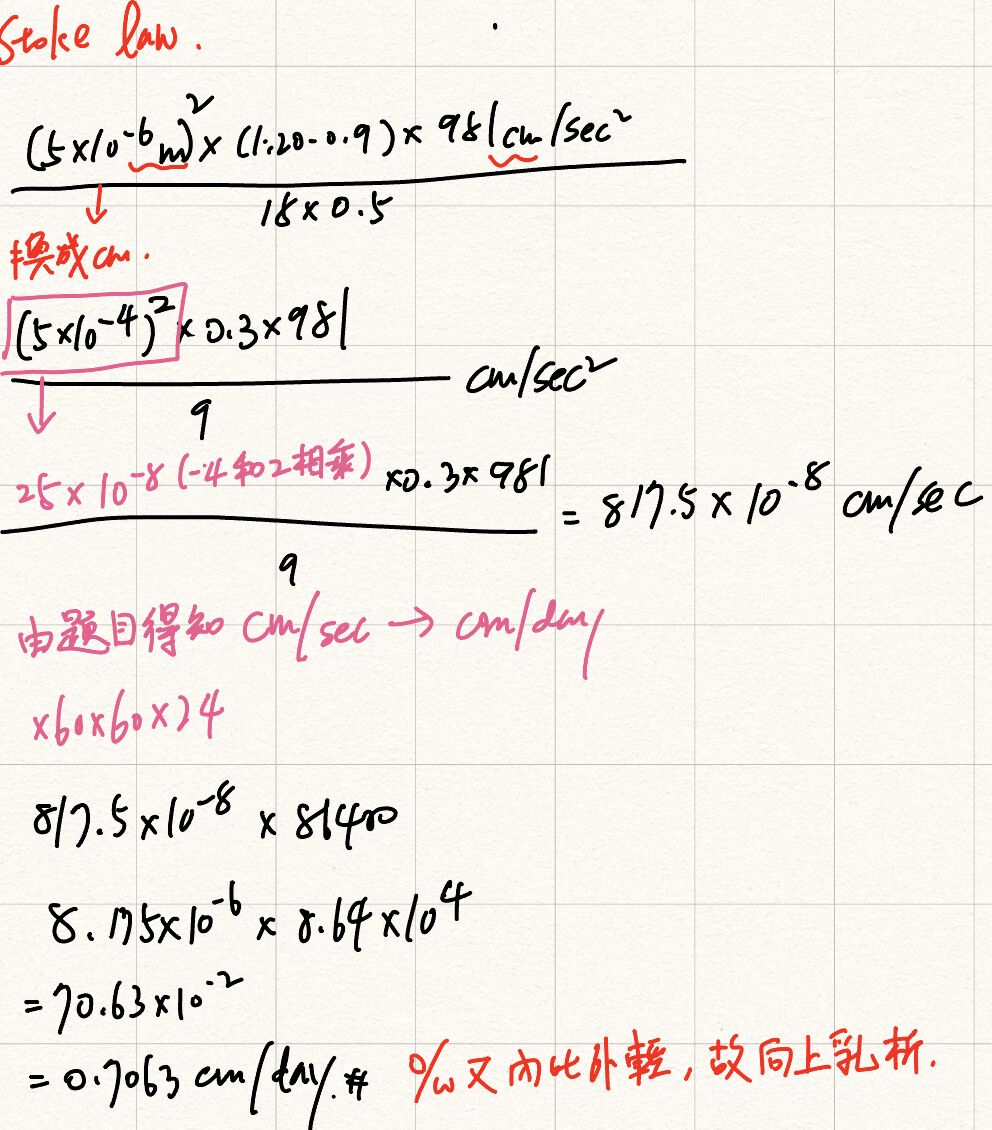 Stoke law.
(5×10⁻⁶m)²×(1.20-0.9)×981cm/sec²
18×0.5
換成cm.
(5×10⁻⁴)²×0.3×981
9
cm/sec²
25×10⁻⁸(-4和2相乘)×0.3×981
9
= 817.5×10⁻⁸ cm/sec
由題目得知 cm/sec → cm/day
×60×60×24
817.5×10⁻⁸ × 86400
8.175×10⁻⁶ × 8.64×10⁴
=70.63×10⁻²
= 0.7063 cm/day.# o/w又內比外輕,故向上乳析.